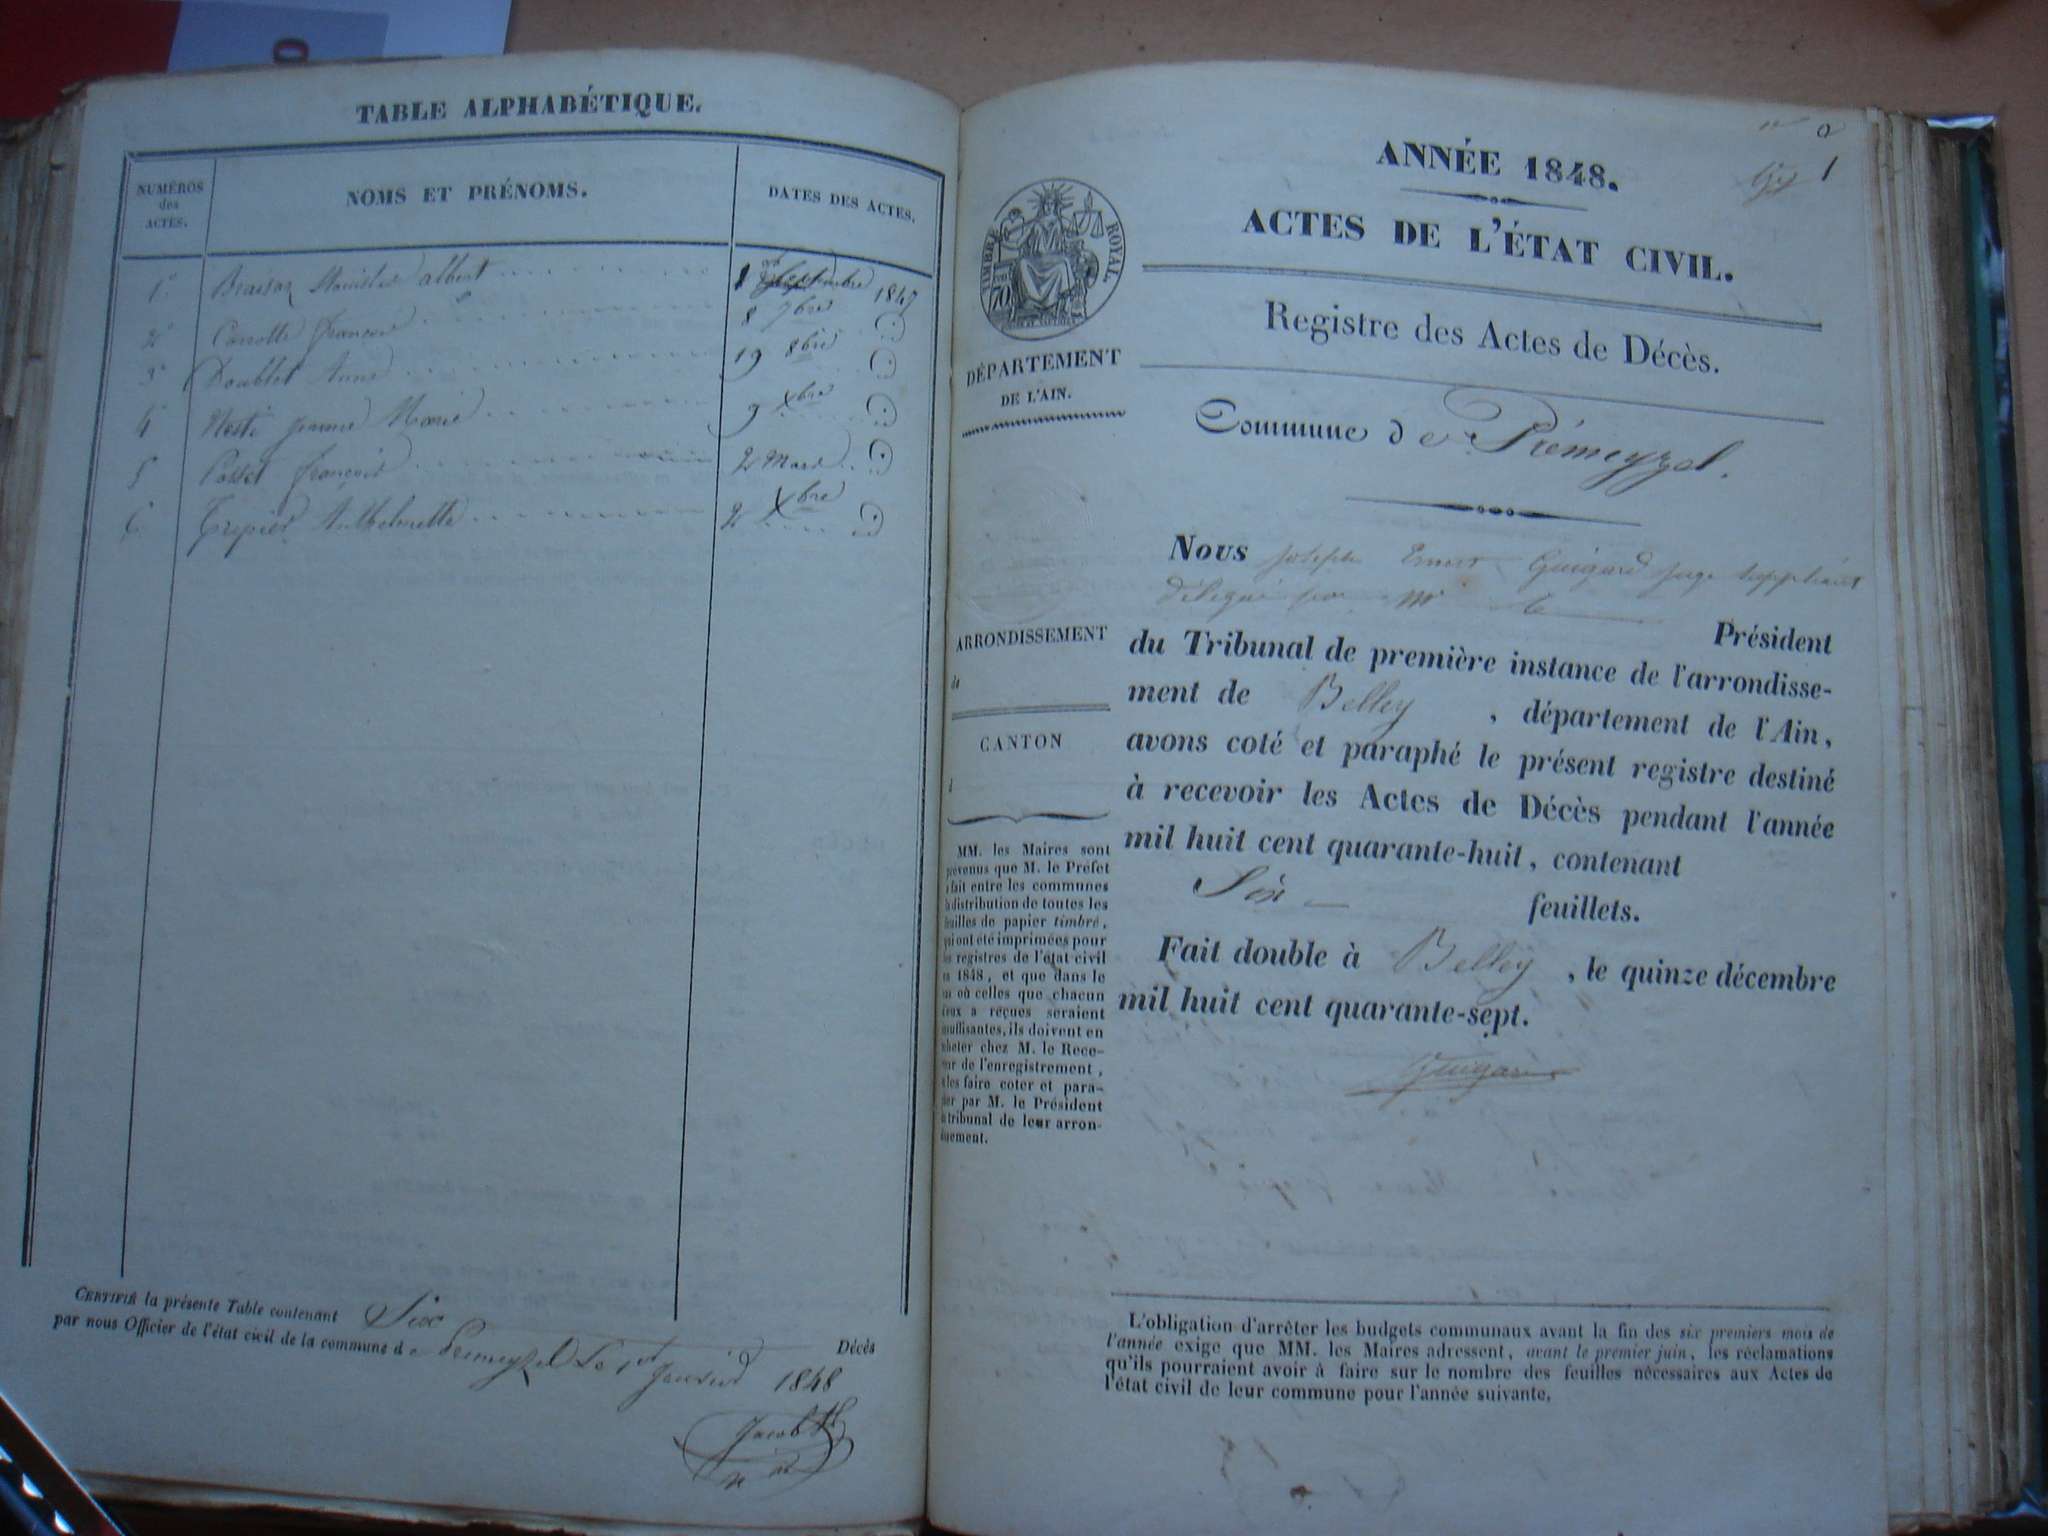 TABLE ALPHABÉTIQUE.
NUMÉROS
des
ACTES.
NOMS ET PRÉNOMS.
DATES DES ACTES.
1° albert 1 1847
2° Carrotte françois 8 7bre
3° Doublet Anne 19 8bre
4 jeanne Marie 9 Xbre
5 Posset françois 2 Mars
6 Tripier Anthelmette 2 Xbre
CERTIFIÉ la présente Table contenant Six Décès
par nous Officier de l'état civil de la commune de Prémeyzel Le 1er 1848
Jacob
1
ANNÉE 1848.
ACTES DE L'ÉTAT CIVIL.
TIMBRE ROYAL.
70
Registre des Actes de Décès.
DÉPARTEMENT
DE L'AIN.
Commune de Prémeyzel.
ARRONDISSEMENT
de
CANTON
d
MM. les Maires sont
prévenus que M. le Préfet
a fait entre les communes
la distribution de toutes les
feuilles de papier timbré,
qui ont été imprimées pour
les registres de l'état civil
en 1848, et que dans le
cas où celles que chacun
d'eux a reçues seraient
insuffisantes, ils doivent en
acheter chez M. le Rece-
veur de l'enregistrement,
et les faire coter et para-
pher par M. le Président
du tribunal de leur arron-
dissement.
Nous joseph Ernest Guigard juge suppléant
délégué par Mr le Président
du Tribunal de première instance de l'arrondisse-
ment de Belley, département de l'Ain,
avons coté et paraphé le présent registre destiné
à recevoir les Actes de Décès pendant l'année
mil huit cent quarante-huit, contenant
Six feuillets.
Fait double à Belley, le quinze décembre
mil huit cent quarante-sept.
Guigard
L'obligation d'arrêter les budgets communaux avant la fin des six premiers mois de
l'année exige que MM. les Maires adressent, avant le premier juin, les réclamations
qu'ils pourraient avoir à faire sur le nombre des feuilles nécessaires aux Actes de
l'état civil de leur commune pour l'année suivante.